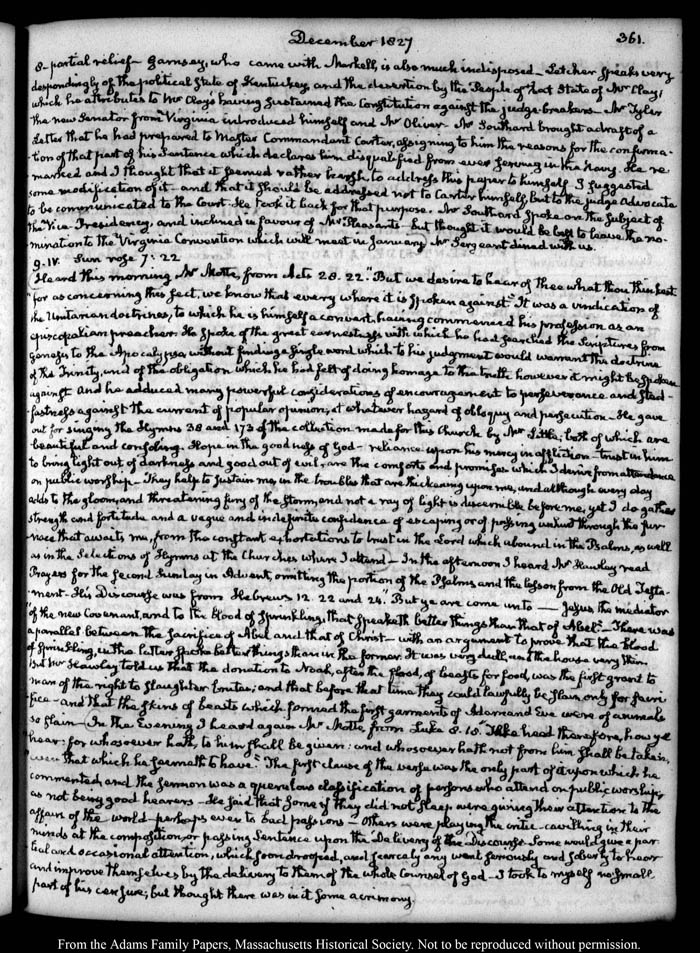 December 1827
361.
8- partial relief- Garnsey, who came with Markell, is also much indisposed- Letcher speaks very
despondingly of the political State of Kentuckey, and the desertion by the People of that State of Mr Clay;
which he attributes to Mr Clay's having sustained the Constitution against the judge-breakers- Mr Tyler
the new Senator from Virginia introduced himself and Mr Oliver- Mr Southard brought a draft of a
Letter that he had prepared to Master Commandant Carter, assigning to him the reasons for the confirma-
tion of that part of his Sentence which declares him disqualified from ever serving in the Navy. He re-
marked and I thought that it seemed rather harsh to address this paper to himself. I suggested
some modification of it- and that it should be addressed not to Carter himself, but to the judge Advocate
to be communicated to the Court. He took it back for that purpose. Mr Southard spoke on the subject of
the Vice Presidency, and inclined in favour of Mr Pleasants- but thought it would be best to leave the no-
mination to the Virginia Convention which will meet in January. Mr Sergeant dined with us.
9. IV. Sun rose 7. 22
Heard this morning Mr Motte, from Acts 28. 22. "But we desire to hear of thee what thou thinkest
"for as concerning this sect, we know that every where it is spoken against." It was a vindication of
the Unitarian doctrines, to which he is himself a convert, having commenced his profession as an
episcopalian preacher. He spoke of the great earnestness with which he had searched the Scriptures from
Genesis to the Apocalypse, without finding a single word which to his judgment would warrant the doctrine
of the Trinity, and of the obligation which he had felt of doing homage to the truth however it might be spoken
against. And he adduced many powerful considerations of encouragement to perseverance and stead-
fastness against the current of popular opinion, at whatever hazard of obloquy and persecution- He gave
out for singing the Hymns 38 and 173 of the collection made for this Church by Mr Little, both of which are
beautiful and consoling. Hope in the goodness of God- reliance upon his mercy in affliction- trust in him
to bring light out of darkness and good out of evil, are the comforts and promises which I derive from attendance
on public worship- They help to sustain me, in the troubles that are thickening upon me, and although every day
adds to the gloom, and threatening fury of the storm, and not a ray of light is discernible before me, yet I do gather
strength and fortitude and a vague and indefinite confidence of escaping or of passing unhurt through the fur-
nace that awaits me, from the constant exhortations to trust in the Lord which abound in the Psalms, as well
as in the Selections of Hymns at the Churches where I attend- In the afternoon I heard Mr Hawley read
Prayers for the second Sunday in Advent, omitting the portion of the Psalms and the lesson from the Old Testa-
ment- His Discourse was from Hebrews 12. 22 and 24. "But ye are come unto — Jesus the mediator
"of the new Covenant, and to the blood of sprinkling, that speaketh better things than that of Abel."- There was
a parallel between the Sacrifice of Abel and that of Christ- with an argument to prove that the blood
of sprinkling, in the latter spoke better things than in the former. It was very dull, and the house very thin.
But Mr Hawley told us that the donation to Noah, after the flood, of beasts for food, was the first grant to
man of the right to slaughter brutes; and that before that time they could lawfully be slain only for sacri-
fice- and that the skins of beasts which formed the first garments of Adam and Eve were of animals
so slain- In the Evening I heard again Mr Motte, from Luke 8. 18. "Take heed therefore, how ye
hear: for whosoever hath, to him shall be given: and whosoever hath not from him shall be taken,
"even that which he seemeth to have." The first clause of the verse was the only part of it upon which he
commented, and the sermon was a querulous classification of persons who attend on public worship,
as not being good hearers- He said that some if they did not sleep, were giving their attention to the
affairs of the world- perhaps even to bad passions- Others were playing the critic- cavilling in their
minds at the composition, or passing Sentence upon the Delivery of the Discourse. Some would give a par-
tial and occasional attention, which soon drooped, and scarcely any went seriously and soberly to hear
and improve themselves by the delivery to them of the whole Counsel of God- I took to myself no small
part of his censure; but thought there was in it some acrimony.
From the Adams Family Papers, Massachusetts Historical Society. Not to be reproduced without permission.